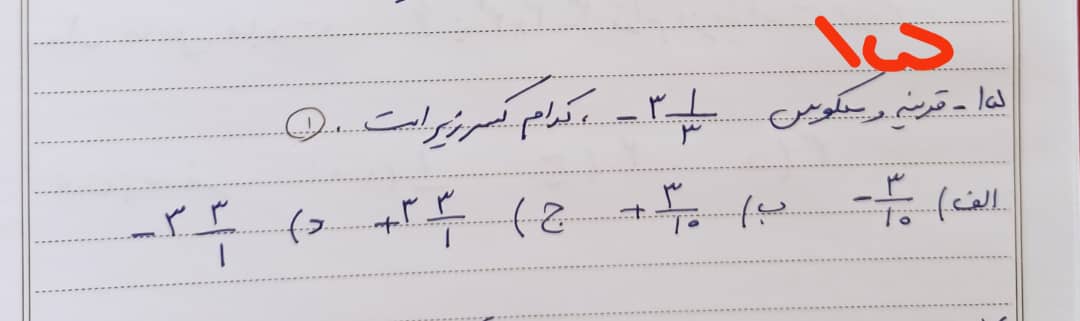 ۱۵
۱۵- قرینه و معکوس -۳ ۱/۳ ، کدام کسر زیر است . ۱
الف) -۳/۱۰ ب) +۳/۱۰ ج) +۳ ۳/۱ د) -۳ ۳/۱